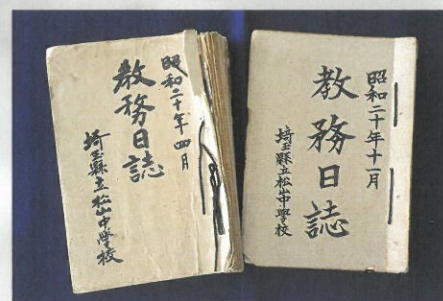 昭和二十年四月
教務日誌
埼玉縣立松山中學校
昭和二十年十一月
教務日誌
埼玉縣立松山中學校